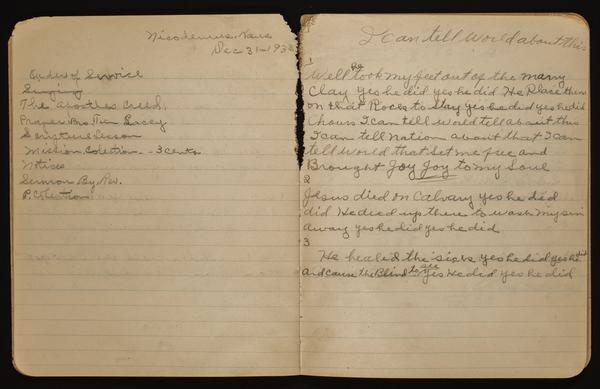 Nicodemus Kans
Dec 31-193
Order of Service
Singing
The apostles Creed.
Prayer Bro. Lacey
Scripture Lesson
Mission Colection - 3 cents
Notices
Sermon By Rev.
P. Colection
I can tell World about this
1
Well he took my feet out of the marry
Clay Yes he did yes he did He Place them
on Rocks to Stay yes he did yes he did
Chours I can tell World tell about this
I can tell nation about that I can
tell World that set me free and
Brought Joy Joy to my Soul
2
Jesus died on Calvary yes he did
did He died up there to wash my sin
away yes he did yes he did
3
He healed the sick yes he did yes he did
and cause the Blind to see Yes He did yes he did